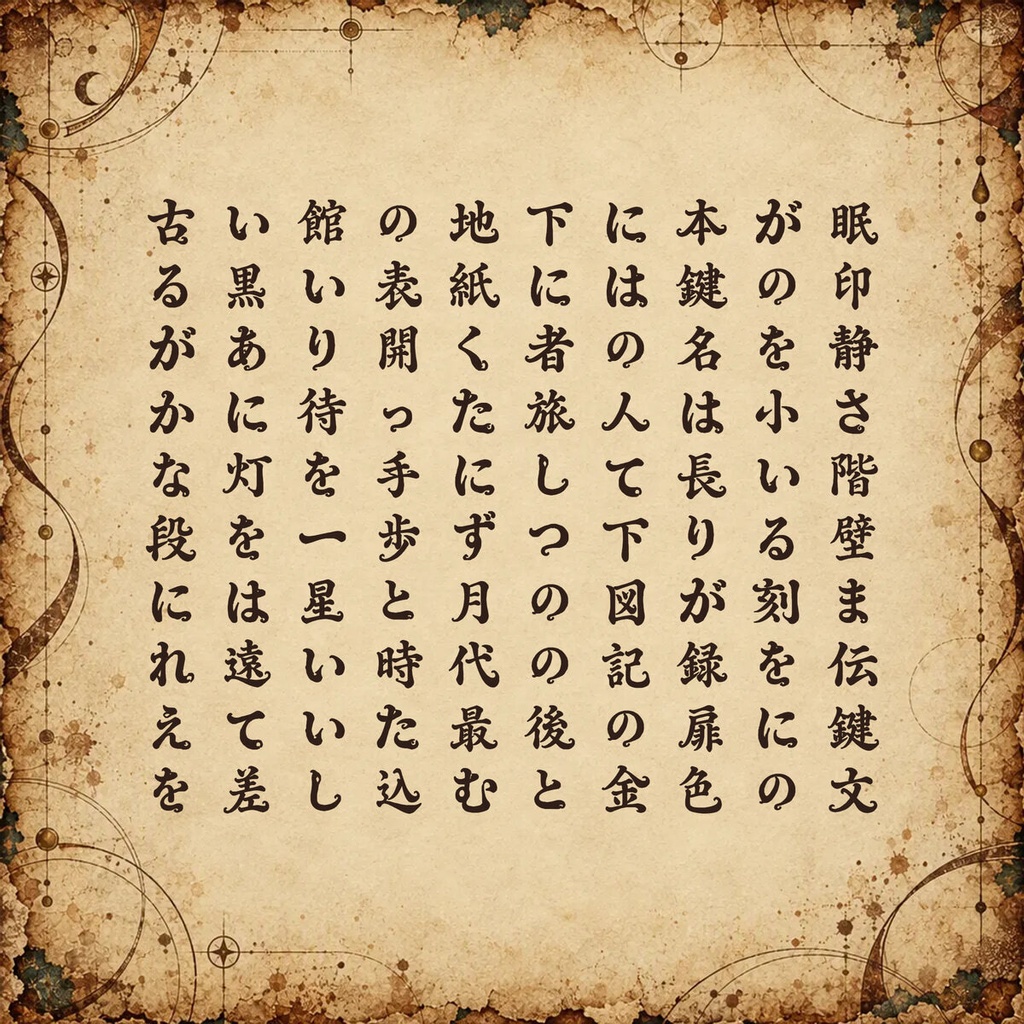 古い館の地下に本が眠
る黒い表紙には鍵の印
があり開く者の名を静
かに待った旅人は小さ
な灯を手にして長い階
段を一歩ずつ下りる壁
には星と月の図が刻ま
れ遠い時代の記録を伝
えていた最後の扉に鍵
を差し込むと金色の文